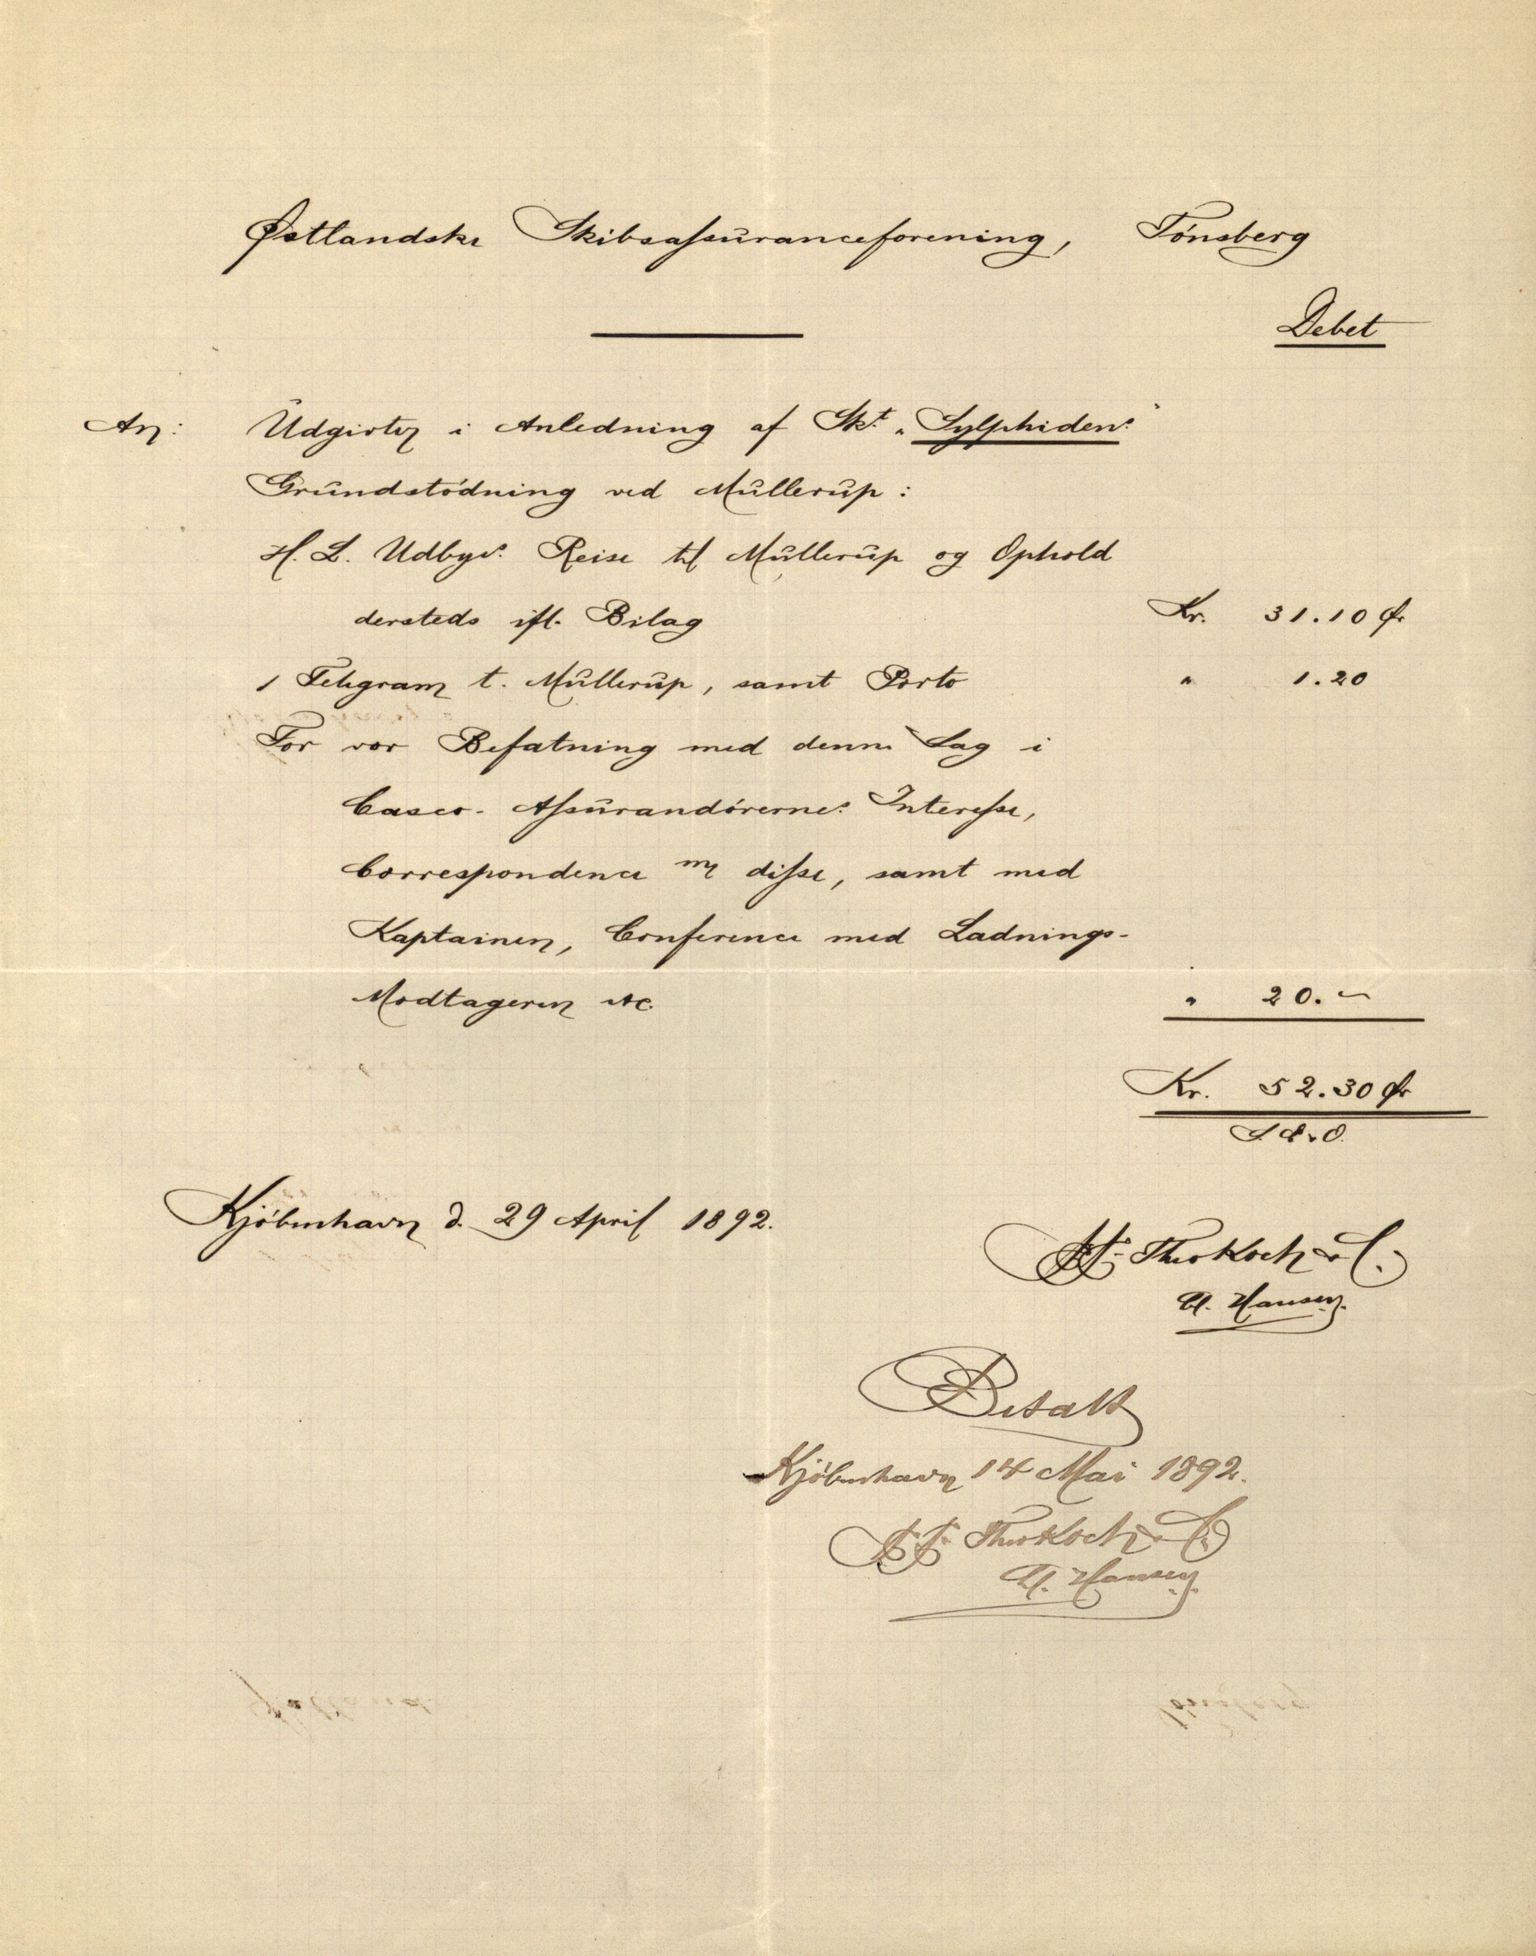 Østlandske Skibsassuranceforening, Tönsberg
Debet
An: Udgifter i Anledning af Skt. „Sylphidens"
Grundstödning ved Müllerup:
H. L. Udbys Reise til Müllerup og Ophold
dersteds ifl. Bilag Kr. 31.10 Ør
1 Telegram t. Müllerup, samt Porto " 1.20
For vor Befatning med denne Sag i
Casco-Assurandörernes Interesse,
Correspondence m disse, samt med
Kaptainen, Conference med Ladnings-
Modtageren etc. " 20.–
Kr. 52.30 Ør
S. E. & O.
Kjöbenhavn d. 29 April 1892.
pp. Theo Koch & C.
H. Hansen.
Betalt
Kjöbenhavn 14 Mai 1892.
pp. Theo Koch & C.
H. Hansen.